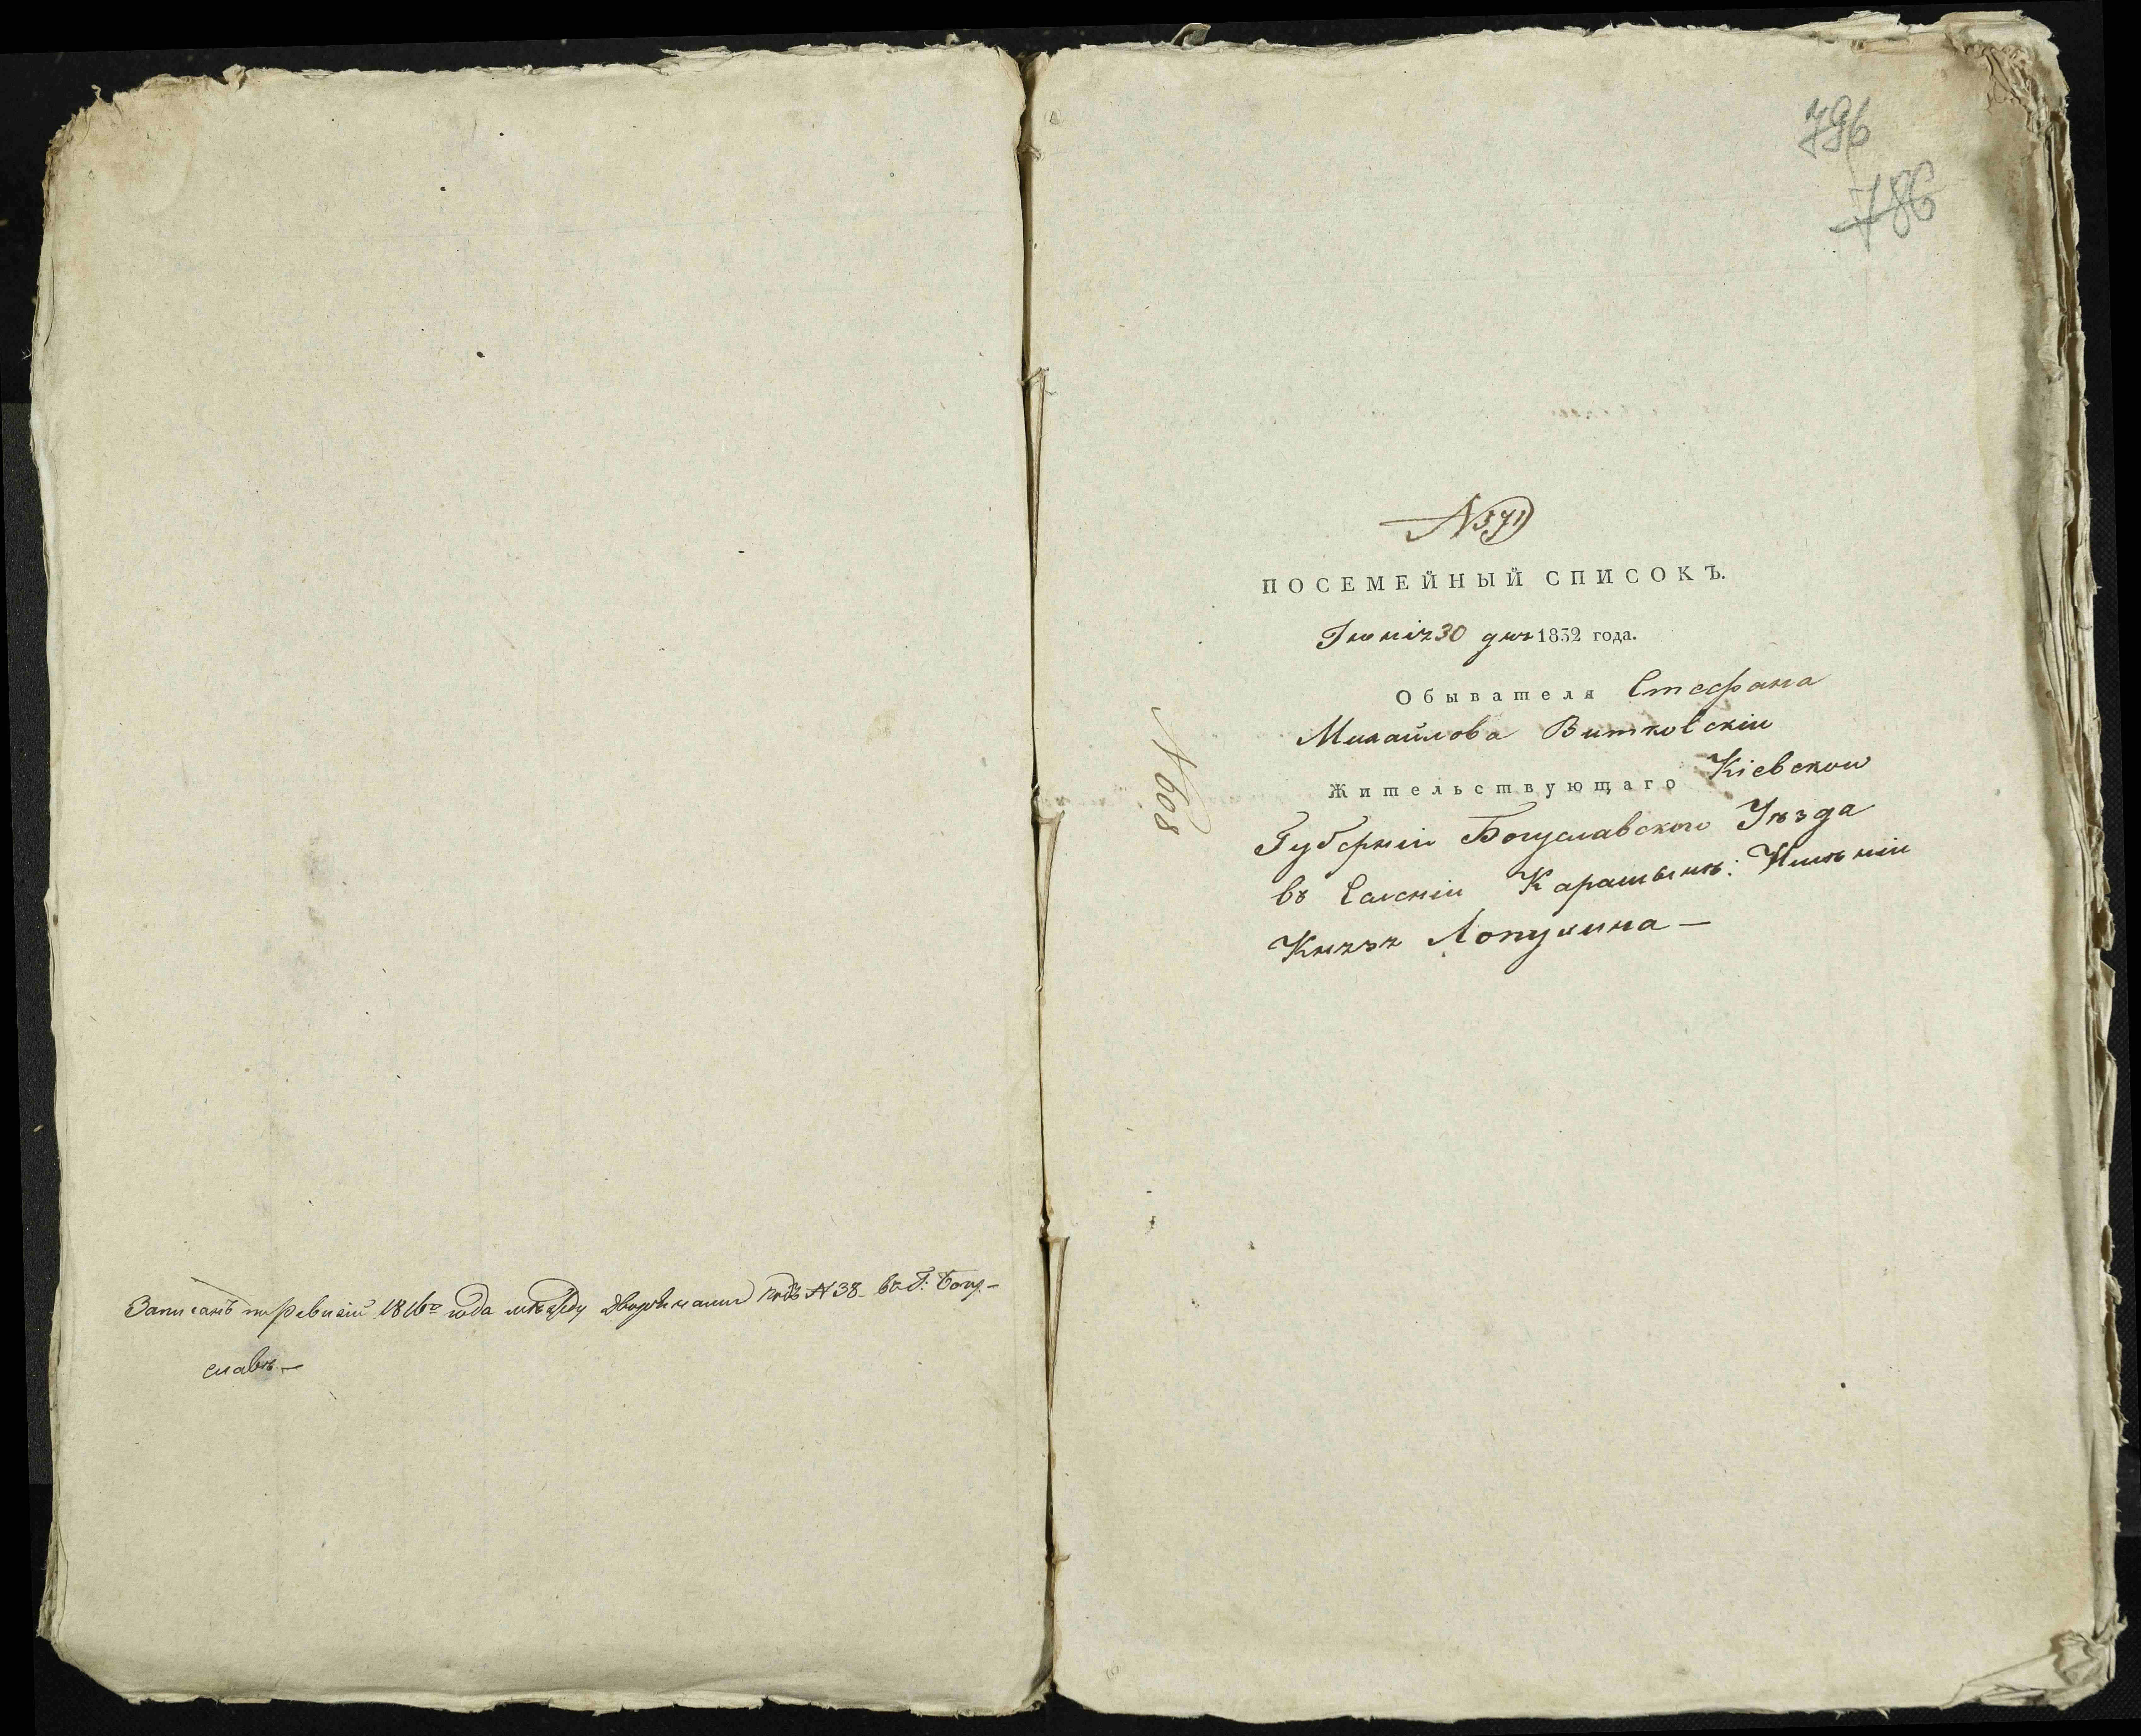 Записанъ по ревизіи 1816го года между дворянами подъ N 38 въ Г: Богу-
славѣ. —
796
786
N 371
ПОСЕМЕЙНЫЙ СПИСОКЪ.
Іюнія 30 дня 1832 года.
Обывателя Стефана
Михайлова Витковскій
Жительствующаго Кіевской
Губерніи Богуславского Уѣзда
въ Селеніи Карашинѣ: Имѣніи
Князя Лопухина —
N 608